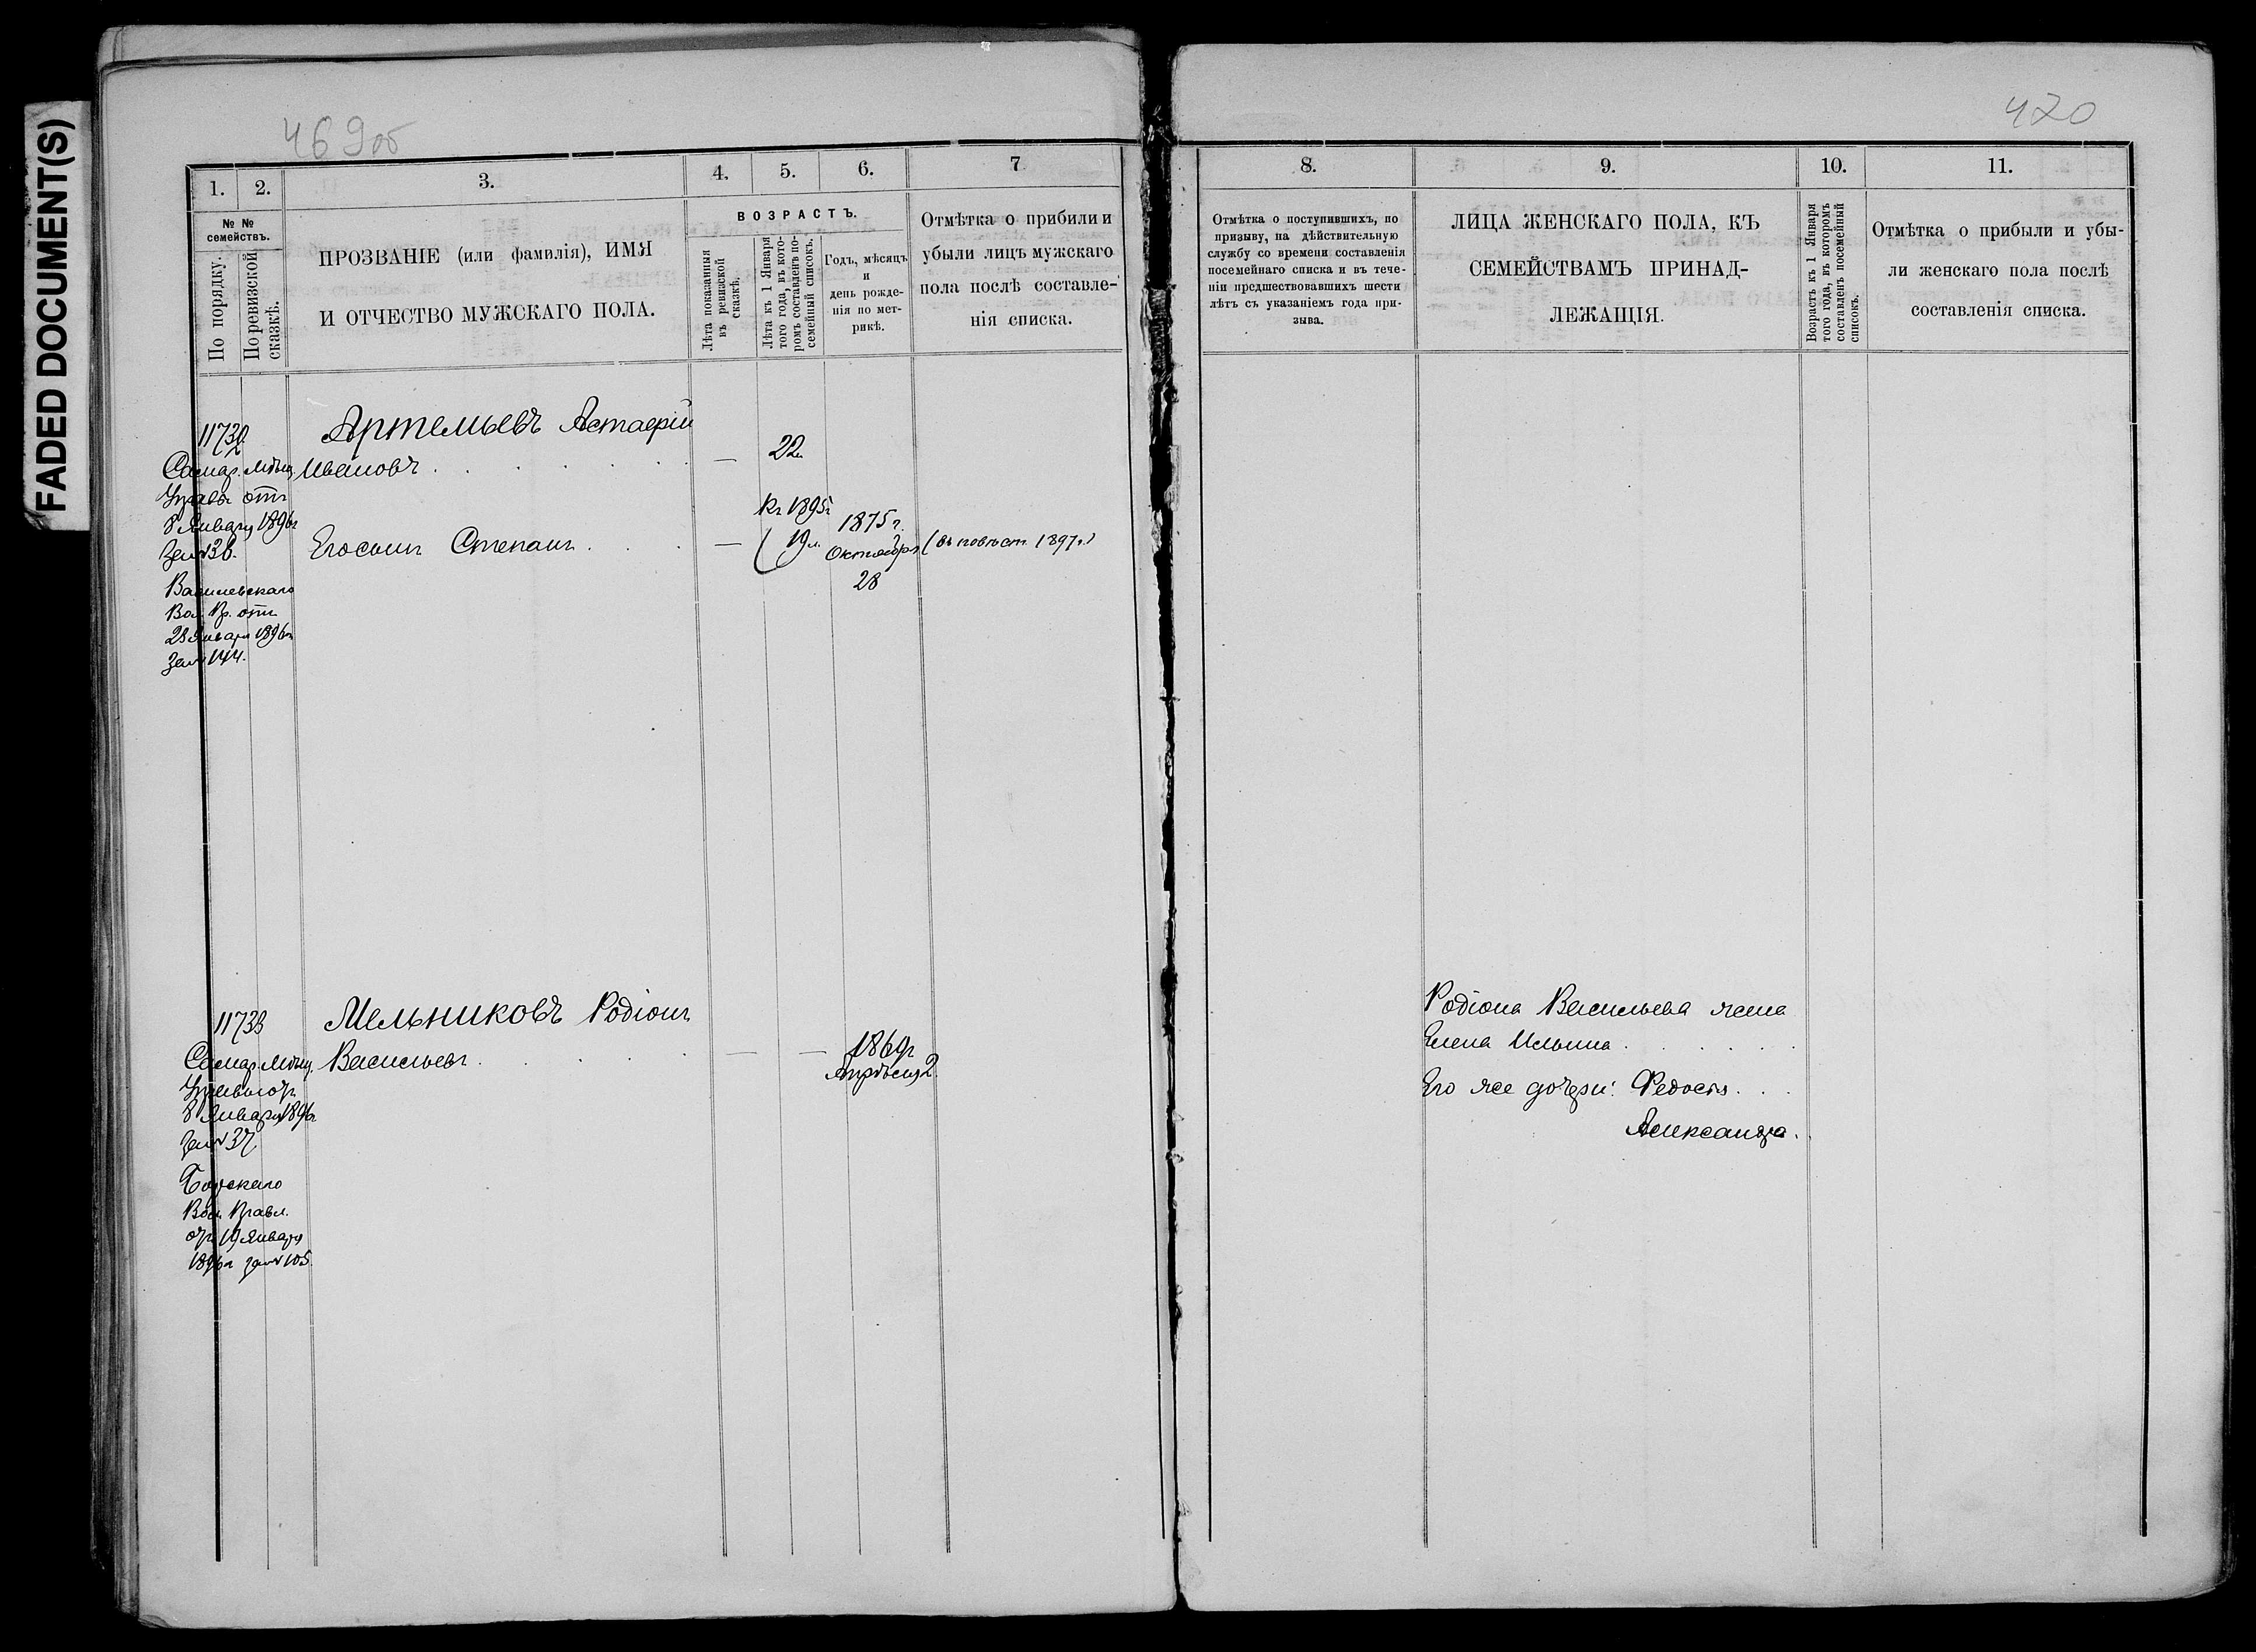 FADED DOCUMENT(S)
469об
420
1.
2.
3.
4.
5.
6.
7
8.
9.
10.
11.
№ №
семействъ.
По порядку.
По ревизской
сказкѣ.
ПРОЗВАНІЕ (или фамилія), ИМЯ
И ОТЧЕСТВО МУЖСКАГО ПОЛА.
ВОЗРАСТЪ.
Лѣта показанныя
въ ревизской
сказкѣ.
Лѣта къ 1 Января
того года, въ кото-
ромъ составленъ по-
семейный списокъ.
Годъ, мѣсяцъ
и
день рожде-
нія по мет-
рикѣ.
Отмѣтка о прибыли и
убыли лицъ мужскаго
пола послѣ составле-
нія списка.
Отмѣтка о поступившихъ, по
призыву, на дѣйствительную
службу со времени составленія
посемейнаго списка и въ тече-
ніи предшествовавшихъ шести
лѣтъ съ указаніемъ года при-
зыва.
ЛИЦА ЖЕНСКАГО ПОЛА, КЪ
СЕМЕЙСТВАМЪ ПРИНАД-
ЛЕЖАЩІЯ.
Возрастъ къ 1 Января
того года, въ которомъ
составленъ посемейный
списокъ.
Отмѣтка о прибыли и убы-
ли женскаго пола послѣ
составленія списка.
Артемьевъ Астаерій
Ивановъ
22
Самар. Мѣщ.
Управы отъ
8 Января 1896г
За № 38.
Къ 1895г
1875г.
Его сынъ Степанъ
19 л.
Октября
28
(въ повѣст. 1897г.)
Вол. Пр. отъ
28 Января 1896г
За № 144.
11733
Мельниковъ Родіонъ
Самар. Мѣщ.
Васильевъ
1869г
Апрѣля 2
Управы отъ
8 Января 1896г
За № 37
Борскаго
Вол. Правл.
отъ 19 Января
1896г за № 105.
Родіона Васильева жена
Елена Ильина
Его же дочери: Федосья
Александра.